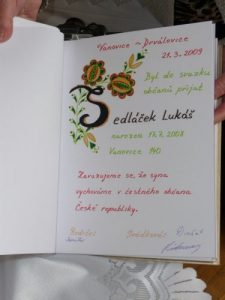 Vanovice ~ Drválovice
21.3.2009
Byl do svazku
občanů přijat
Sedláček Lukáš
narozen 17.7.2008
Vanovice 140.
Zavazujeme se, že syna
vychováme v čestného občana
České republiky.
Rodiče: